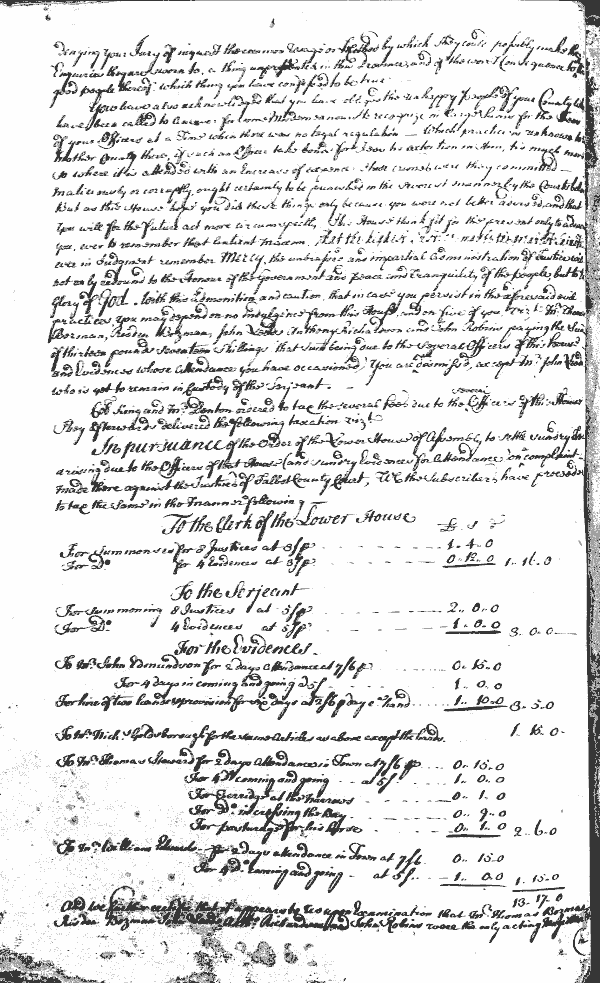 denying your Jury of inquest the common usage or Method by which they could possibly make the
Enquirie they are sworn to, a thing in the Province, and of the worst Consequence to the
good people thereof which thing you have confessed to be true
You have also acknowledged that you have obliged the unhappy people of your County who
have been called to Answer for some Misdemeanours to recognize in larger Sums for the
of your Officers at a Time when there was no legal regulation — Which practice is unknown to
Mother County there, if such an Officer take bond for Fees tis extortion in him, tis much more
so where it is attended with an Encrease of expence these crimes were they committed
maliciously or corruptly ought certainly to be punished in the severest manner by the Court
But as this House hope you did these things only because you were not better advised, and that
you will for the future act more circumspectly This House think fit for the present only to advise
you, ever to remember that Antient Maxim, that the highest
ever in Judgment remember Mercy, the unbiass'd and impartial Administration of Justice will
not only redound to the Honour of the Government and peace and Tranquility of the people, but to the
Glory of God. With this Admonition and caution, that in case you persist in the aforesaid evil
practices you may depend on no indulgence from this House and on five of you Vizt. Mr. Thomas
Bozman, Risdon Bozman, John Anthony Richardson and John Robins paying the Sum
of thirteen pounds seventeen Shillings that Sum being due to the Several Officers of this House
and Evidences whose Attendance you have occasioned You are dismissed, except Mr. John
who is yet to remain in Custody of the Serjeant.
Col. King and Mr. Denton ordered to tax the several fees due to the several Officers of this House
they afterwards delivered the following taxation vizt
In pursuance of the Order of the Lower House of Assembly, to settle the sundry
arising due to the Officers of that House (and sundry Evidences for Attendance on complaint
made there against the Justices of Talbot County Court, We the Subscribers have proceeded
to tax the same in the Manner following
To the Clerk of the Lower House £ s d
For summonses for 8 Justices at 3/p 1.. 4.. 0
For Do. for 4 Evidences at 3/p 0.. 12.. 0 1.. 16.. 0
To the Serjeant
For summoning 8 Justices at 5/p 2.. 0.. 0
For Do. 4 Evidences at 5/p 1.. 0.. 0 3.. 0.. 0
For the Evidences.
To Mr. John Edmundson for 2 days Attendance at 7/6 p 0.. 15.. 0
For 4 days in coming and going a 5/ 1.. 0.. 0
For hire of two hands & provision for six days at 2/6 p day each hand 1.. 10.. 0 3.. 5.. 0
To Mr. Nichs. Goldsborough for the same Articles as above except the hands 1.. 15.. 0
To Mr. Thomas Steward for 2 days Attendance in Town at 7/6 p 0.. 15.. 0
For 4 Do. coming and going at 5/ 1.. 0.. 0
For Ferridge at the Narrows 0.. 1.. 0
For Do. in crossing the Bay 0.. 9.. 0
For pasturage for his Horse 0.. 1.. 0 2.. 6.. 0
To Mr. William Edmonds for 2 days attendance in Town at 7/6 0.. 15.. 0
For 4 Do. coming and going at 5/ 1.. 0.. 0 1.. 15.. 0
13.. 17.. 0
And we further certifie that it appears to us upon Examination that Mr. Thomas Bozman
Risdon Bozman John Anth. Richardson and John Robins were the only acting